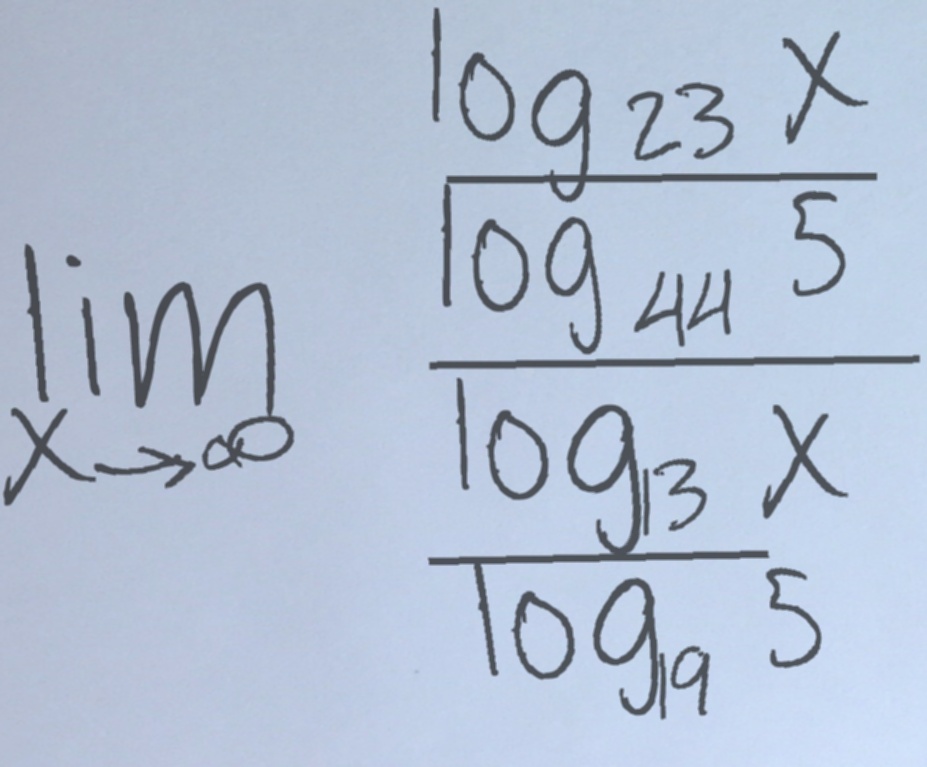 lim x→∞
log 23 x
log 44 5
log 13 x
log 19 5